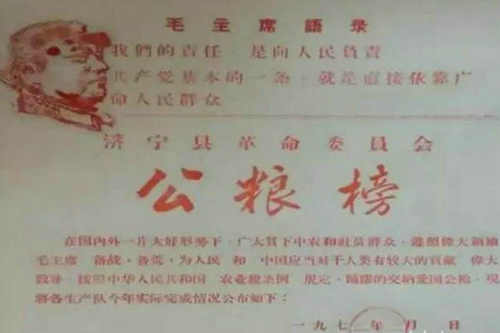 毛主席語录
我們的責任，是向人民負責
共产党基本的一条，就是直接依靠广
命人民群众
济宁县革命委員会
公粮榜
在国内外一片大好形势下，广大貧下中农和社員群众，遵照偉大領袖
毛主席 备战，备荒，为人民 和 中国应当对于人类有較大的貢献 偉大
教导，按照中华人民共和国 农业税条例 規定，踊躍的交納爱国公粮，現
将各生产队今年实际完成情况公布如下：
一九七 年 月 日